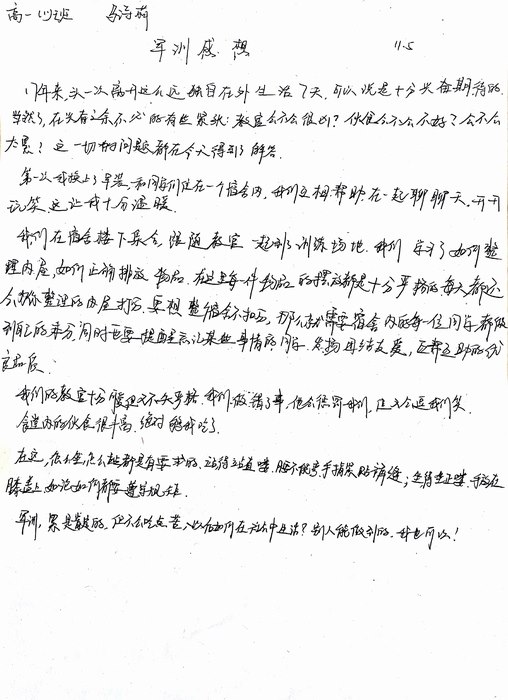 高一(1)班 马诗莉
军训感想 11.5
17年来,头一次离开这么远独自在外生活7天,可以说是十分兴奋期待的。
当然了,在兴奋之余不少的有些紧张:教官会不会很凶?伙食会不会不好?会不会
太累?这一切的问题都在今天得到了解答。
第一次我换上了军装和同学们住在一个宿舍内,我们互相帮助在一起聊聊天,开开
玩笑,这让我十分温暖。
我们在宿舍楼下集合,跟随教官一起到了训练场地。我们学习了如何整
理内务,如何正确排放物品。在这里每一件物品的摆放都是十分严格的每天都还
会对你整理的内务打分,要想整宿舍不扣分,那么就需要宿舍内的每一位同学都做
到自己的本分同时也要提醒忘记某些事情的同学,发扬团结友爱,互帮互助的优
良品质。
我们的教官十分 但又不失严格,我们做错了事,他会 我们,但又会逗我们笑
食堂内的伙食很丰富,绝对 我吃了。
在这,怎么坐怎么站都是有要求的,站得站直喽,腿不能弯手指紧贴裤缝;坐得坐正喽,手放在
膝盖上,如论如何都要遵守规矩。
军训,累是真累的,但不会吃点苦,以后如何在社会中生活?别人能做到的,我也可以!